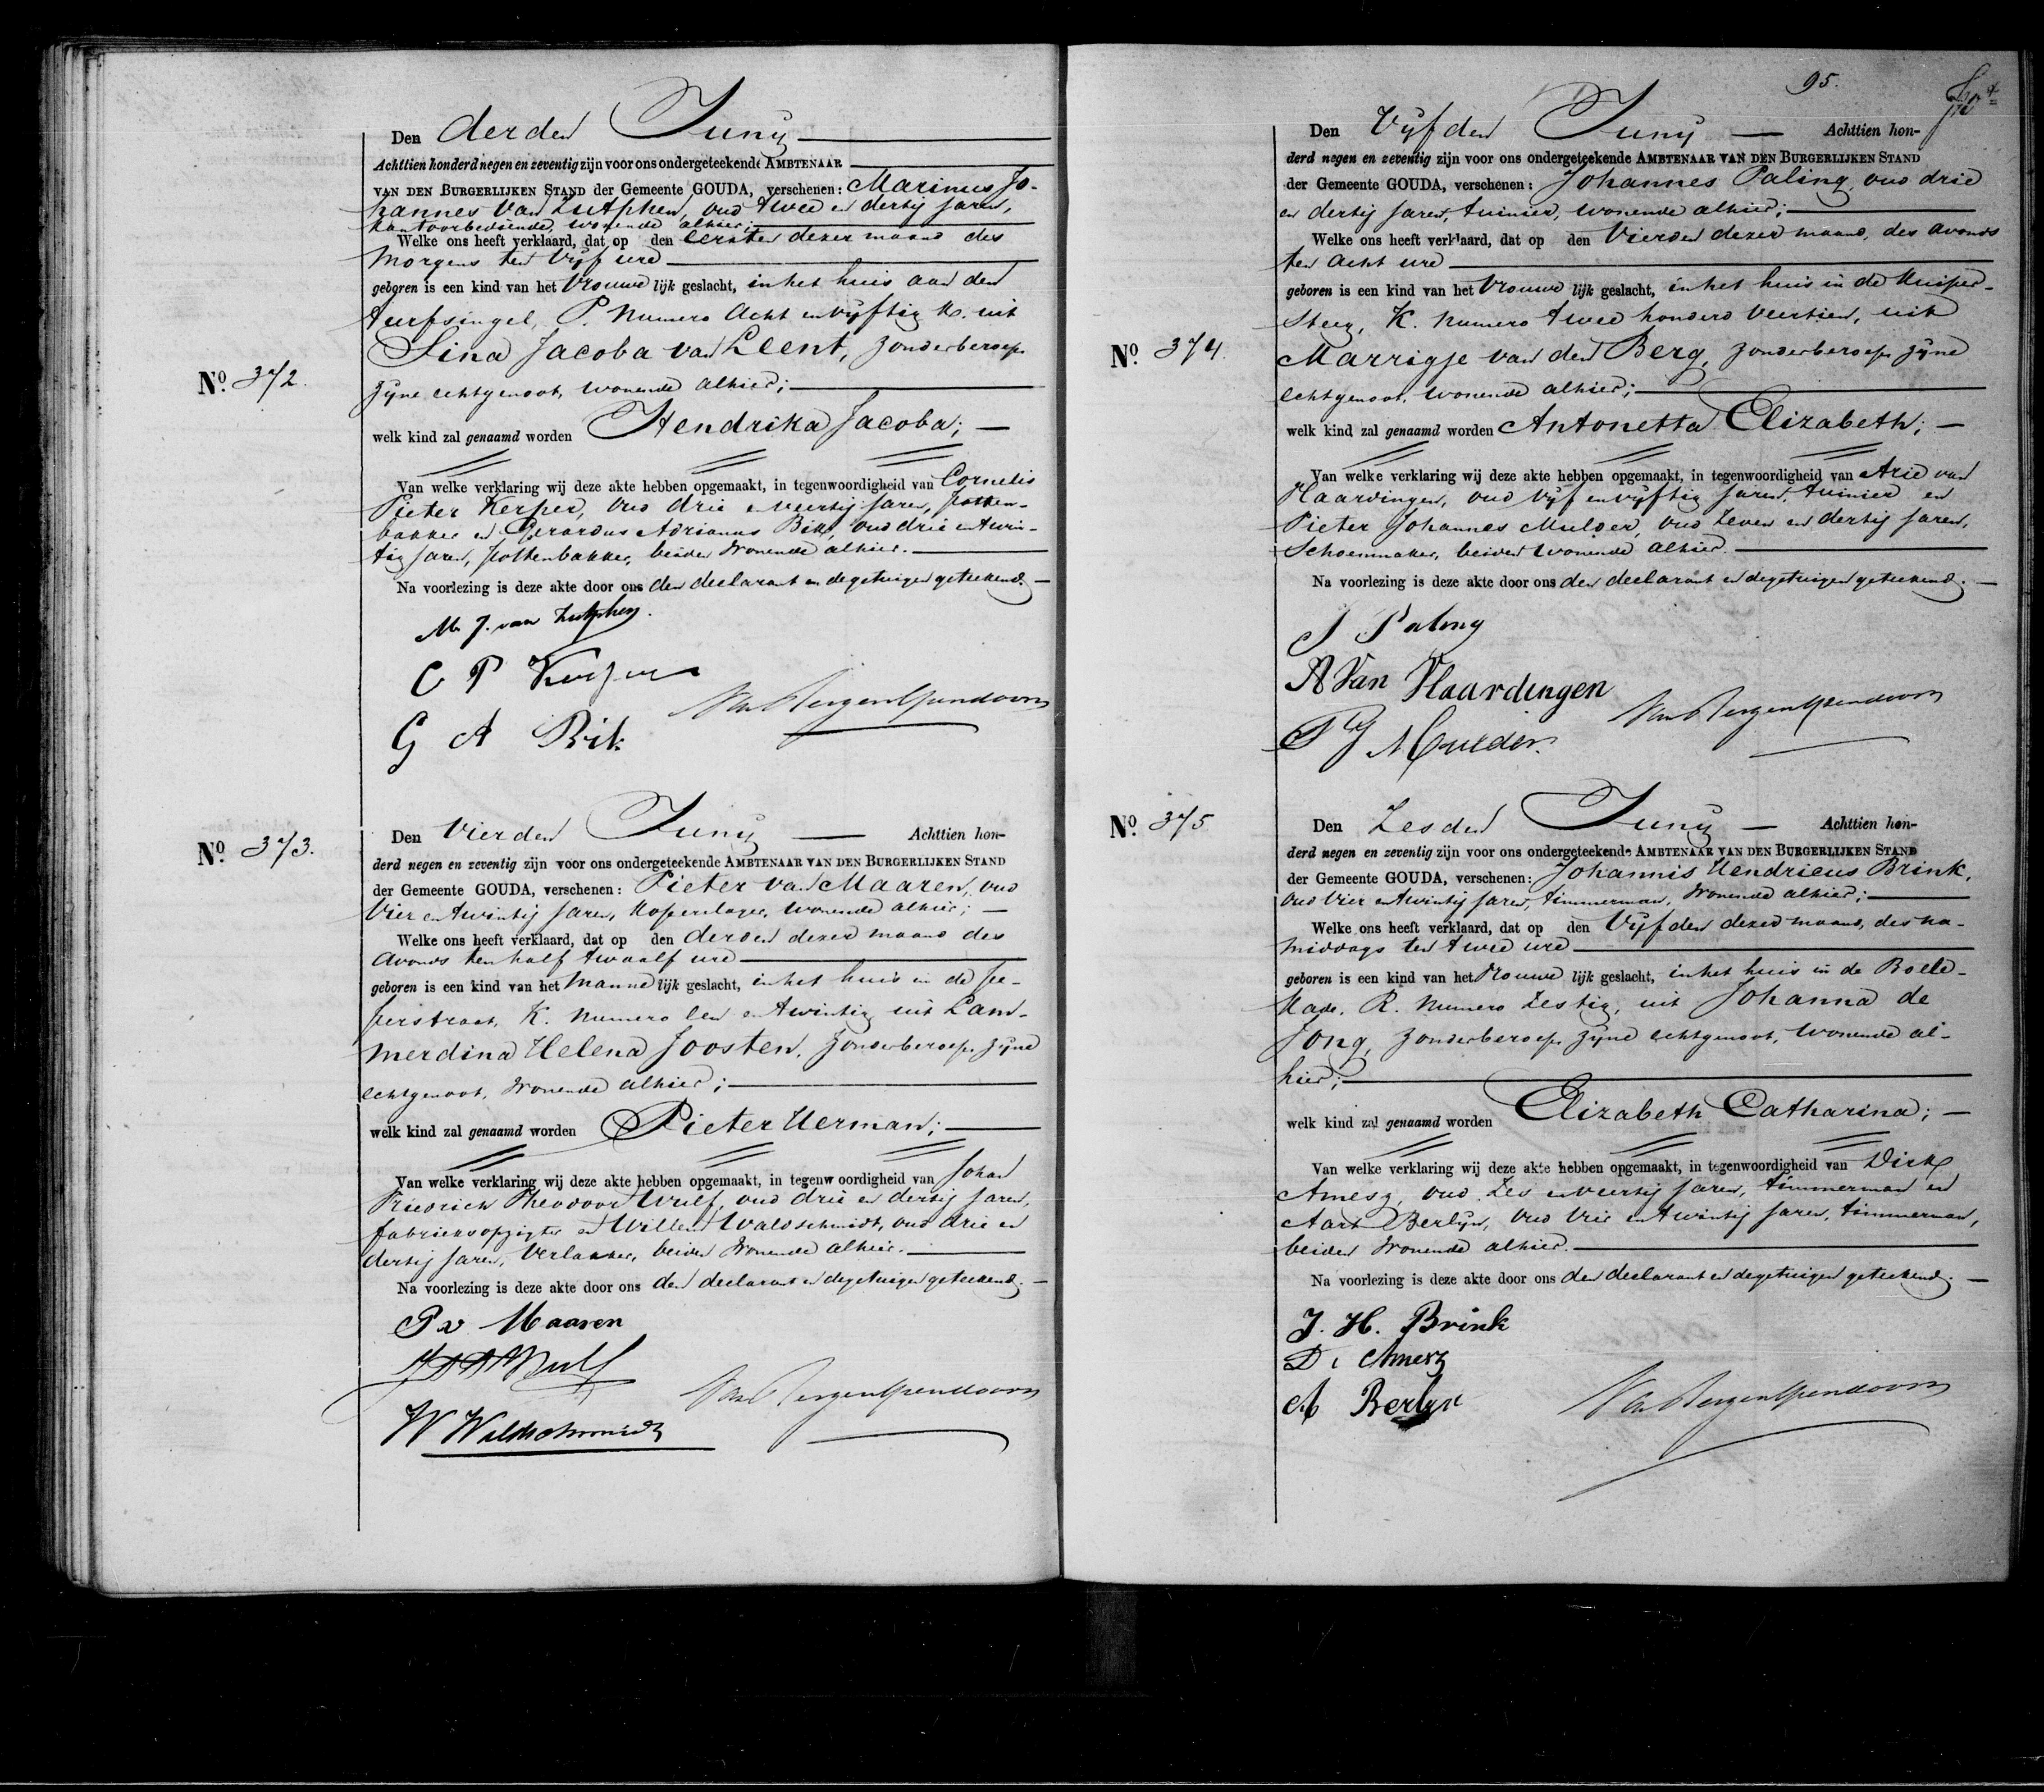 Den derden Juny
Achttien honderd negen en zeventig zijn voor ons ondergeteekende AMBTENAAR
VAN DEN BURGERLIJKEN STAND der Gemeente GOUDA, verschenen: Marinus Jo-
hannes van Zutphen, oud twee en dertig jaren,
kantoorbediende, wonende alhier;
Welke ons heeft verklaard, dat op den eersten dezer maand des
morgens ten vijf ure
geboren is een kind van het vrouwelijk geslacht, in het huis aan den
turfsingel, P. numero acht en vyftig k. uit
Lina Jacoba van Leent, zonder beroep
zyne echtgenoot, wonende alhier;
No. 372.
welk kind zal genaamd worden Hendrika Jacoba;
Van welke verklaring wij deze akte hebben opgemaakt, in tegenwoordigheid van Cornelis
Pieter Kerper, oud drie en veertig jaren, potten-
bakker en Gerardus Adrianus Bik, oud drie en twin-
tig jaren, pottenbakker, beiden wonende alhier.
Na voorlezing is deze akte door ons den declarant en de getuigen geteekend.
M. J. van Zutphen.
C P Kerper
G A Bik
Van Bergen IJzendoorn
No. 373.
Den vierden Juny Achttien hon-
derd negen en zeventig zijn voor ons ondergeteekende AMBTENAAR VAN DEN BURGERLIJKEN STAND
der Gemeente GOUDA, verschenen: Pieter van Maaren, oud
vier en twintig jaren, koperslager, wonende alhier;
Welke ons heeft verklaard, dat op den derden dezer maand des
avonds ten half twaalf ure
geboren is een kind van het mannelijk geslacht, in het huis in de Pe-
perstraat, K. numero een en twintig uit Lam-
merdina Helena Joosten, zonder beroep zyne
echtgenoot, wonende alhier;
welk kind zal genaamd worden Pieter Herman;
Van welke verklaring wij deze akte hebben opgemaakt, in tegenwoordigheid van Johan
Friedrich Theodoor Wulf, oud drie en dertig jaren,
fabrieksopzigter en Willem Waldschmidt, oud drie en
dertig jaren, verlakker, beiden wonende alhier.
Na voorlezing is deze akte door ons den declarant en de getuigen geteekend.
P v Maaren
J F T Wulf
W Waldschmidt
Van Bergen IJzendoorn
95.
Den Vyfden Juny Achttien hon-
derd negen en zeventig zijn voor ons ondergeteekende AMBTENAAR VAN DEN BURGERLIJKEN STAND
der Gemeente GOUDA, verschenen: Johannes Paling, oud drie
en dertig jaren, tuinier, wonende alhier;
Welke ons heeft verklaard, dat op den vierden dezer maand, des avonds
ten acht ure
geboren is een kind van het vrouwelijk geslacht, in het huis in de Kuiper-
steeg, K. numero twee honderd veertien, uit
No. 374.
Marrigje van den Berg, zonder beroep zyne
echtgenoot, wonende alhier;
welk kind zal genaamd worden Antonetta Elizabeth;
Van welke verklaring wij deze akte hebben opgemaakt, in tegenwoordigheid van Arie van
Vlaardingen, oud vyf en vyftig jaren, tuinier en
Pieter Johannes Mulder, oud zeven en dertig jaren,
schoenmaker, beiden wonende alhier.
Na voorlezing is deze akte door ons den declarant en de getuigen geteekend.
J Paling
A Van Vlaardingen
P J Mulder.
Van Bergen IJzendoorn
No. 375
Den Zesden Juny Achttien hon-
derd negen en zeventig zijn voor ons ondergeteekende AMBTENAAR VAN DEN BURGERLIJKEN STAND
der Gemeente GOUDA, verschenen: Johannis Hendricus Brink,
oud vier en twintig jaren, timmerman, wonende alhier;
Welke ons heeft verklaard, dat op den vyfden dezer maand, des na-
middags ten twee ure
geboren is een kind van het vrouwelijk geslacht, in het huis in de Boele-
kade, R. numero zestig, uit Johanna de
Jong, zonder beroep zyne echtgenoot, wonende al-
hier;
welk kind zal genaamd worden Elizabeth Catharina;
Van welke verklaring wij deze akte hebben opgemaakt, in tegenwoordigheid van Dirk
Amesz, oud zes en veertig jaren, timmerman en
Aart Berlyn, oud vier en twintig jaren, timmerman,
beiden wonende alhier.
Na voorlezing is deze akte door ons den declarant en de getuigen geteekend.
J. H. Brink
D. Amesz
A Berlyn
Van Bergen IJzendoorn